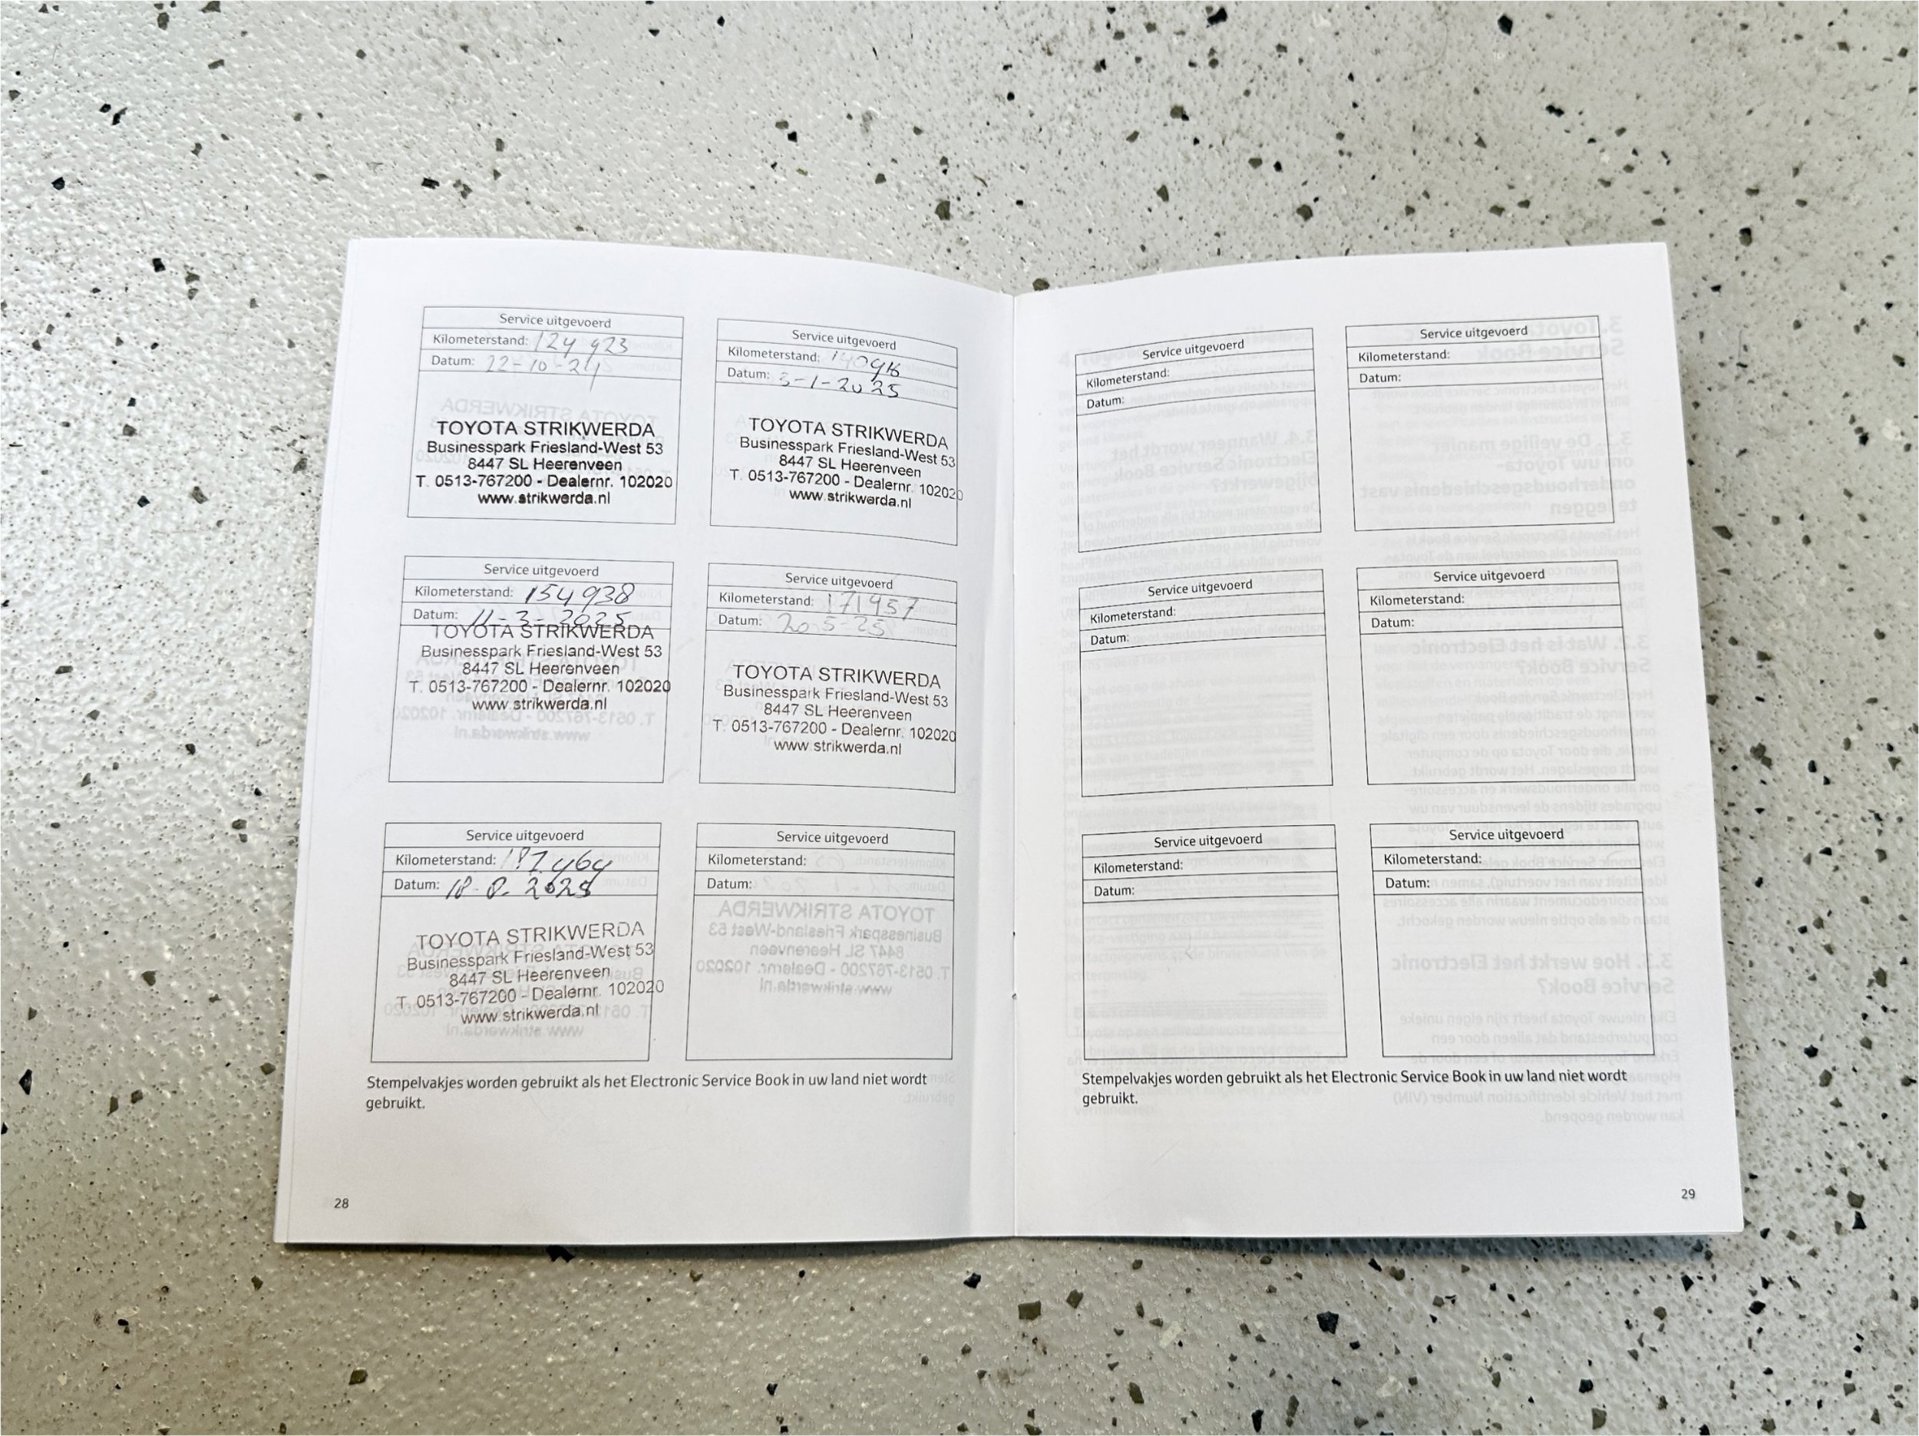 Service uitgevoerd
Kilometerstand: 124 923
Datum: 22-10-24
TOYOTA STRIKWERDA
Businesspark Friesland-West 53
8447 SL Heerenveen
T. 0513-767200 - Dealernr. 102020
www.strikwerda.nl
Service uitgevoerd
Kilometerstand:
Datum: 3-1-2025
TOYOTA STRIKWERDA
Businesspark Friesland-West 53
8447 SL Heerenveen
T. 0513-767200 - Dealernr. 102020
www.strikwerda.nl
Service uitgevoerd
Kilometerstand: 154 938
Datum: 11-3-2025
TOYOTA STRIKWERDA
Businesspark Friesland-West 53
8447 SL Heerenveen
T. 0513-767200 - Dealernr. 102020
www.strikwerda.nl
Service uitgevoerd
Kilometerstand: 171957
Datum: 20-5-25
TOYOTA STRIKWERDA
Businesspark Friesland-West 53
8447 SL Heerenveen
T. 0513-767200 - Dealernr. 102020
www.strikwerda.nl
Service uitgevoerd
Kilometerstand: 187.464
Datum: 18-8-2025
TOYOTA STRIKWERDA
Businesspark Friesland-West 53
8447 SL Heerenveen
T. 0513-767200 - Dealernr. 102020
www.strikwerda.nl
Service uitgevoerd
Kilometerstand:
Datum:
Stempelvakjes worden gebruikt als het Electronic Service Book in uw land niet wordt
gebruikt.
28
Service uitgevoerd
Kilometerstand:
Datum:
Service uitgevoerd
Kilometerstand:
Datum:
Service uitgevoerd
Kilometerstand:
Datum:
Service uitgevoerd
Kilometerstand:
Datum:
Service uitgevoerd
Kilometerstand:
Datum:
Service uitgevoerd
Kilometerstand:
Datum:
Stempelvakjes worden gebruikt als het Electronic Service Book in uw land niet wordt
gebruikt.
29